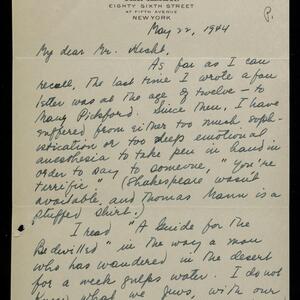 EIGHTY SIXTH STREET
AT FIFTH AVENUE
NEW YORK
P.
May 22, 1944
My dear Mr. Hecht,
As far as I can
recall, the last time I wrote a fan
letter was at the age of twelve - to
Mary Pickford. Since then, I have
suffered from either too much soph-
istication or too deep emotional
anesthesia to take pen in hand in
order to say to someone, "You're
terrific." (Shakespeare wasn't
available, and Thomas Mann is a
stuffed shirt.)
I read "A Guide for the
Bedevilled" in the way a man
who has wandered in the desert
for a week gulps water. I do not
know what we Jews, with our